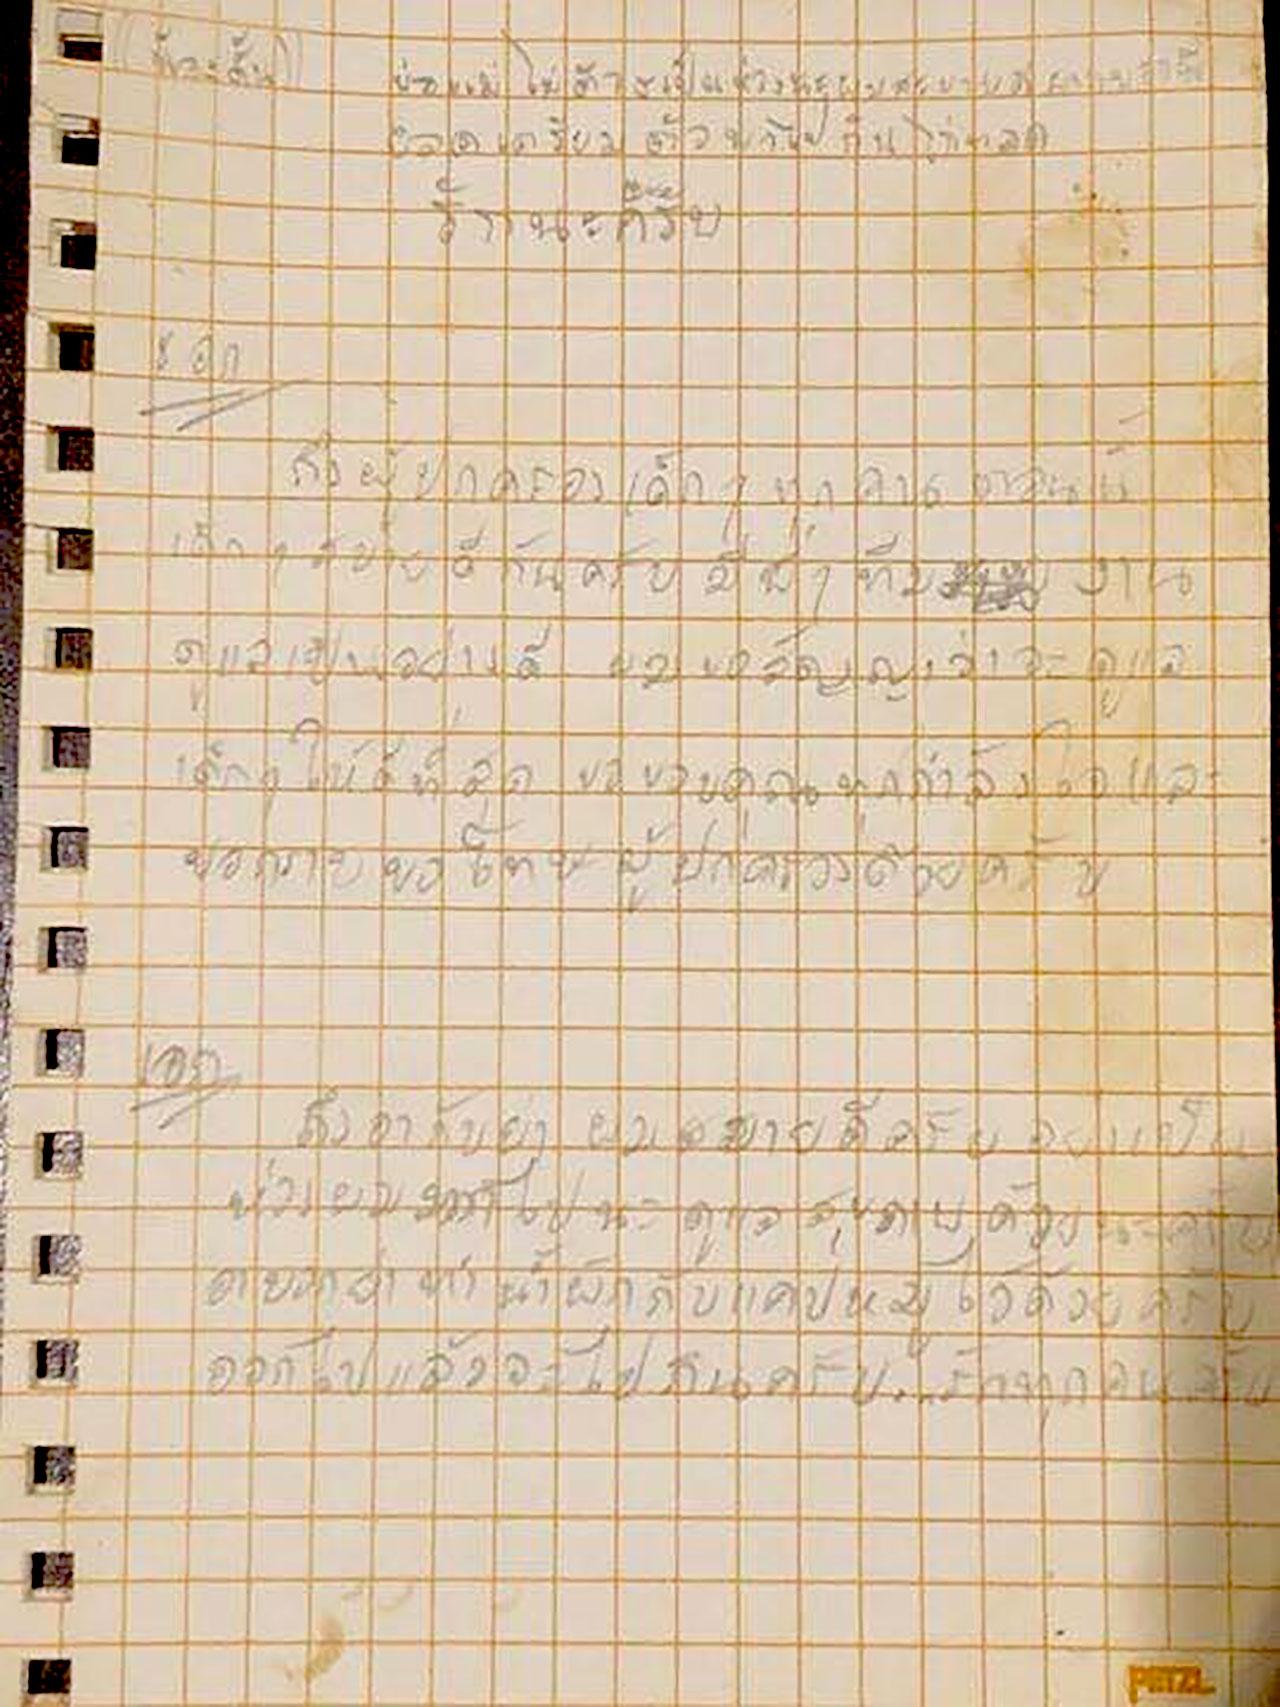 พ่อแม่ ไม่ต้องเป็นห่วงนะผมสบายดี
บอกเตรียม ตัวพาไปกินไก่ทอด
รักนะครับ
เอก
ถึงผู้ปกครองเด็กๆ ทุกคน ตอนนี้
เด็กๆ สบายดีกันครับ มีพี่ๆ ทีม งาน
ดูแลเป็นอย่างดี ผมขอสัญญาว่าจะดูแล
เด็กๆ ให้ดีที่สุด ขอขอบคุณทุกกำลังใจและ
ขอกราบขอโทษ ผู้ปกครองด้วยครับ
เอก
ถึงอากับย่า ผมสบายดีครับ อย่าเป็น
ห่วงผม ไปนะ ดูแลสุขภาพด้วยนะครับ
อาบอกย่าทำน้ำผักกับแคปหมูไว้ด้วยครับ
ออกไปแล้วจะไปกินครับ..รักทุกคนครับ
PETZL